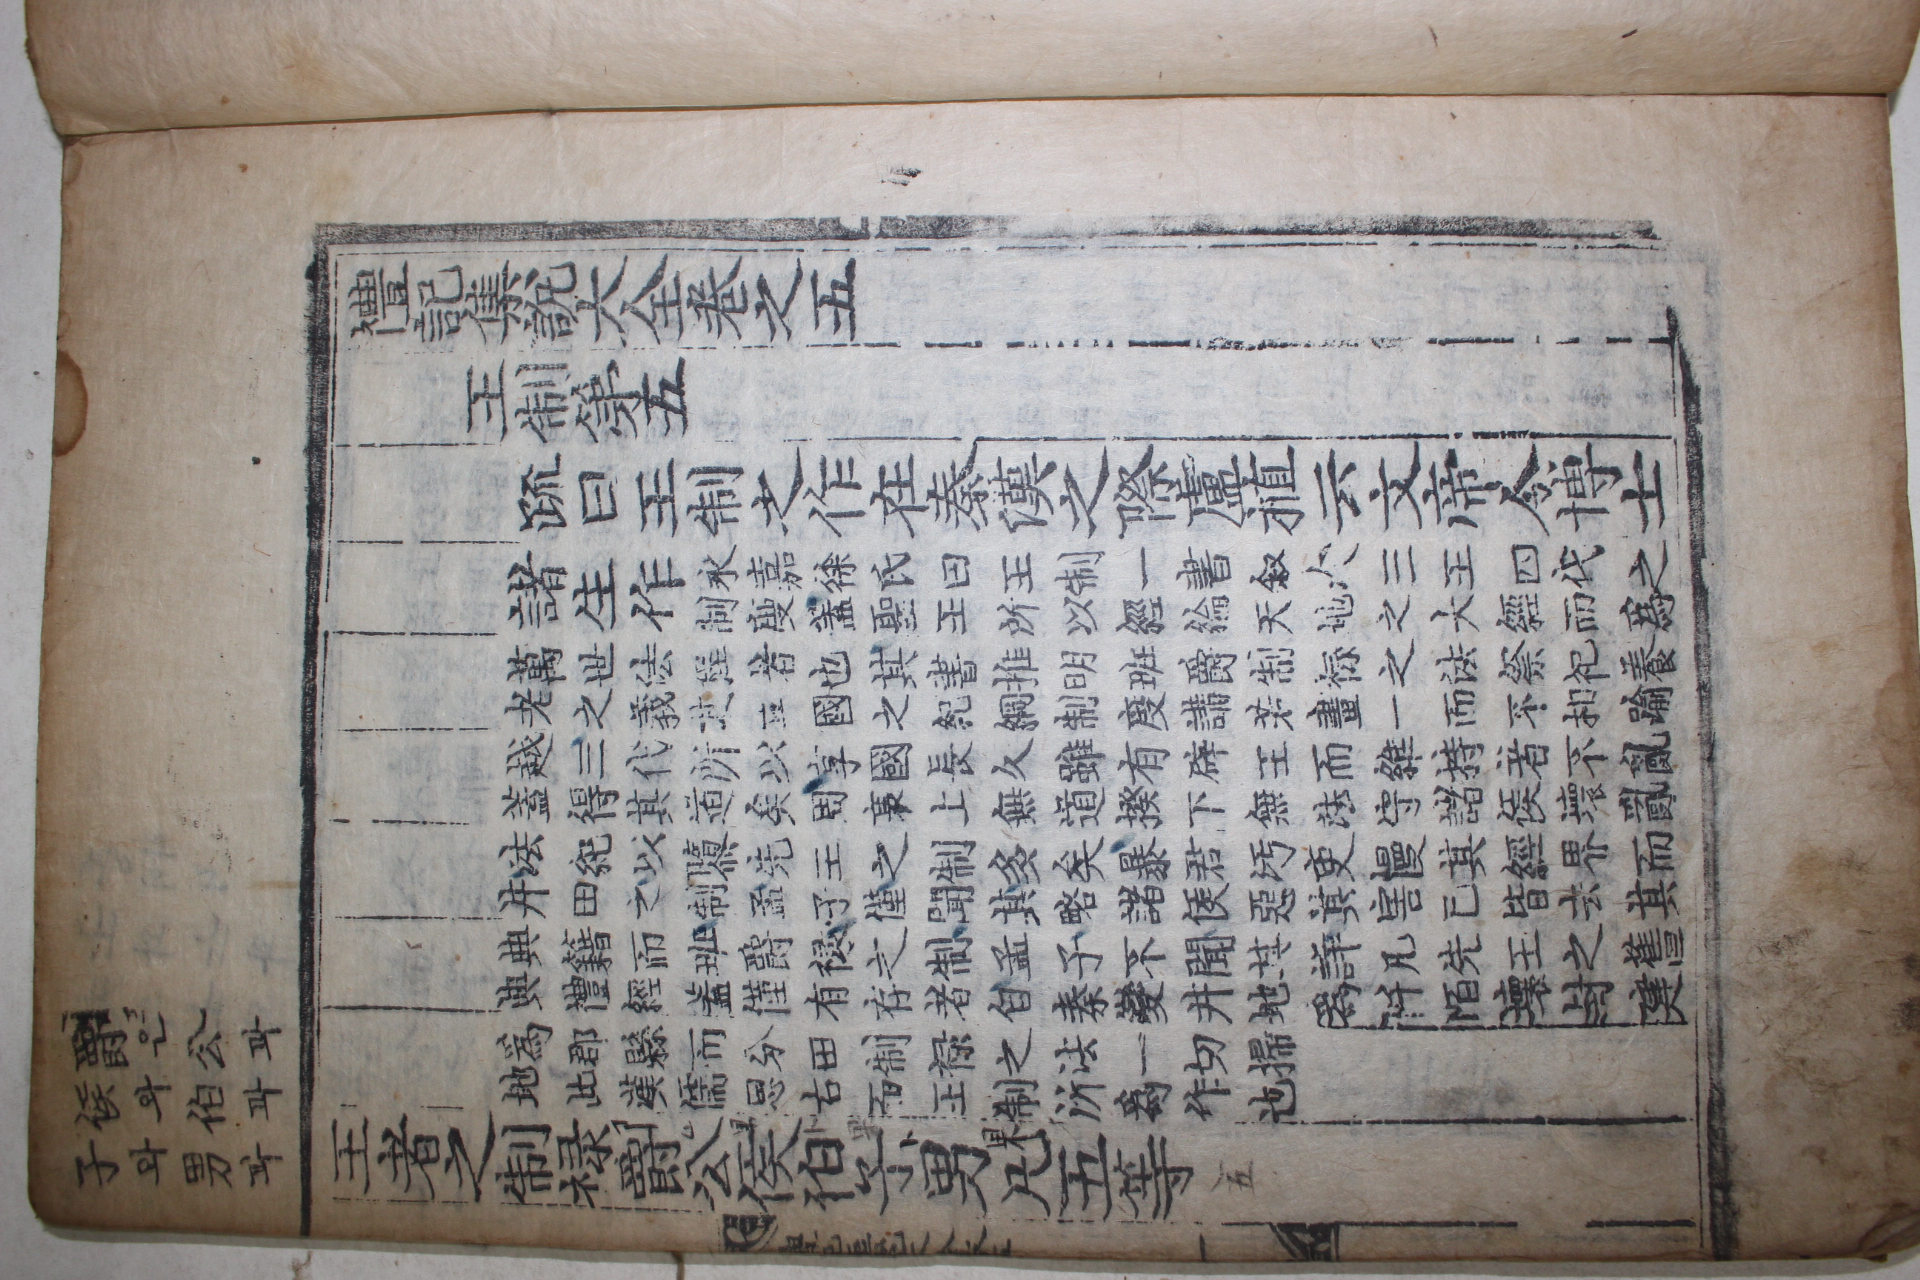 爵은公과
侯와伯과
子와男과
禮記集說大全卷之五
王制第五
疏曰王制之作在秦漢之際盧植云文帝令博士
諸生作
永嘉徐氏曰王制一書叙次三王四代之
制度蓋聖王所以經綸天地之大經而爲
萬世法程者也其書推明班爵制祿之法祭祀養
老之義其立國之紀綱制度講若畫一而不相踰
越三代所以享國長久雖有辟王而維持者不亂
蓋得其道矣周衰上無道揆下無法守諸侯壞亂
法紀以隳先王之制多矣暴君汚吏慢其經界而
井田之制孟子僅聞其略諸侯惡其害已皆去其
典籍而班爵祿之制孟子不聞其詳凡先王之舊
典禮經蓋僅有存者自秦變井地爲阡陌壞封建
爲郡縣而分田制祿之法一切掃
地此漢儒思古而王制所爲作也
王者之制祿爵公侯伯子男凡五等
五